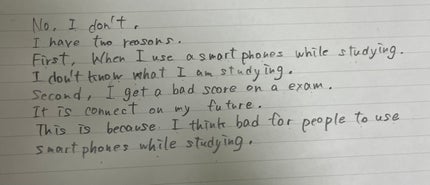 No, I don't.
I have two reasons.
First, When I use a smart phones while studying.
I don't know what I am studying.
Second, I get a bad score on a exam.
It is connect on my future.
This is because I think bad for people to use
smart phones while studying.